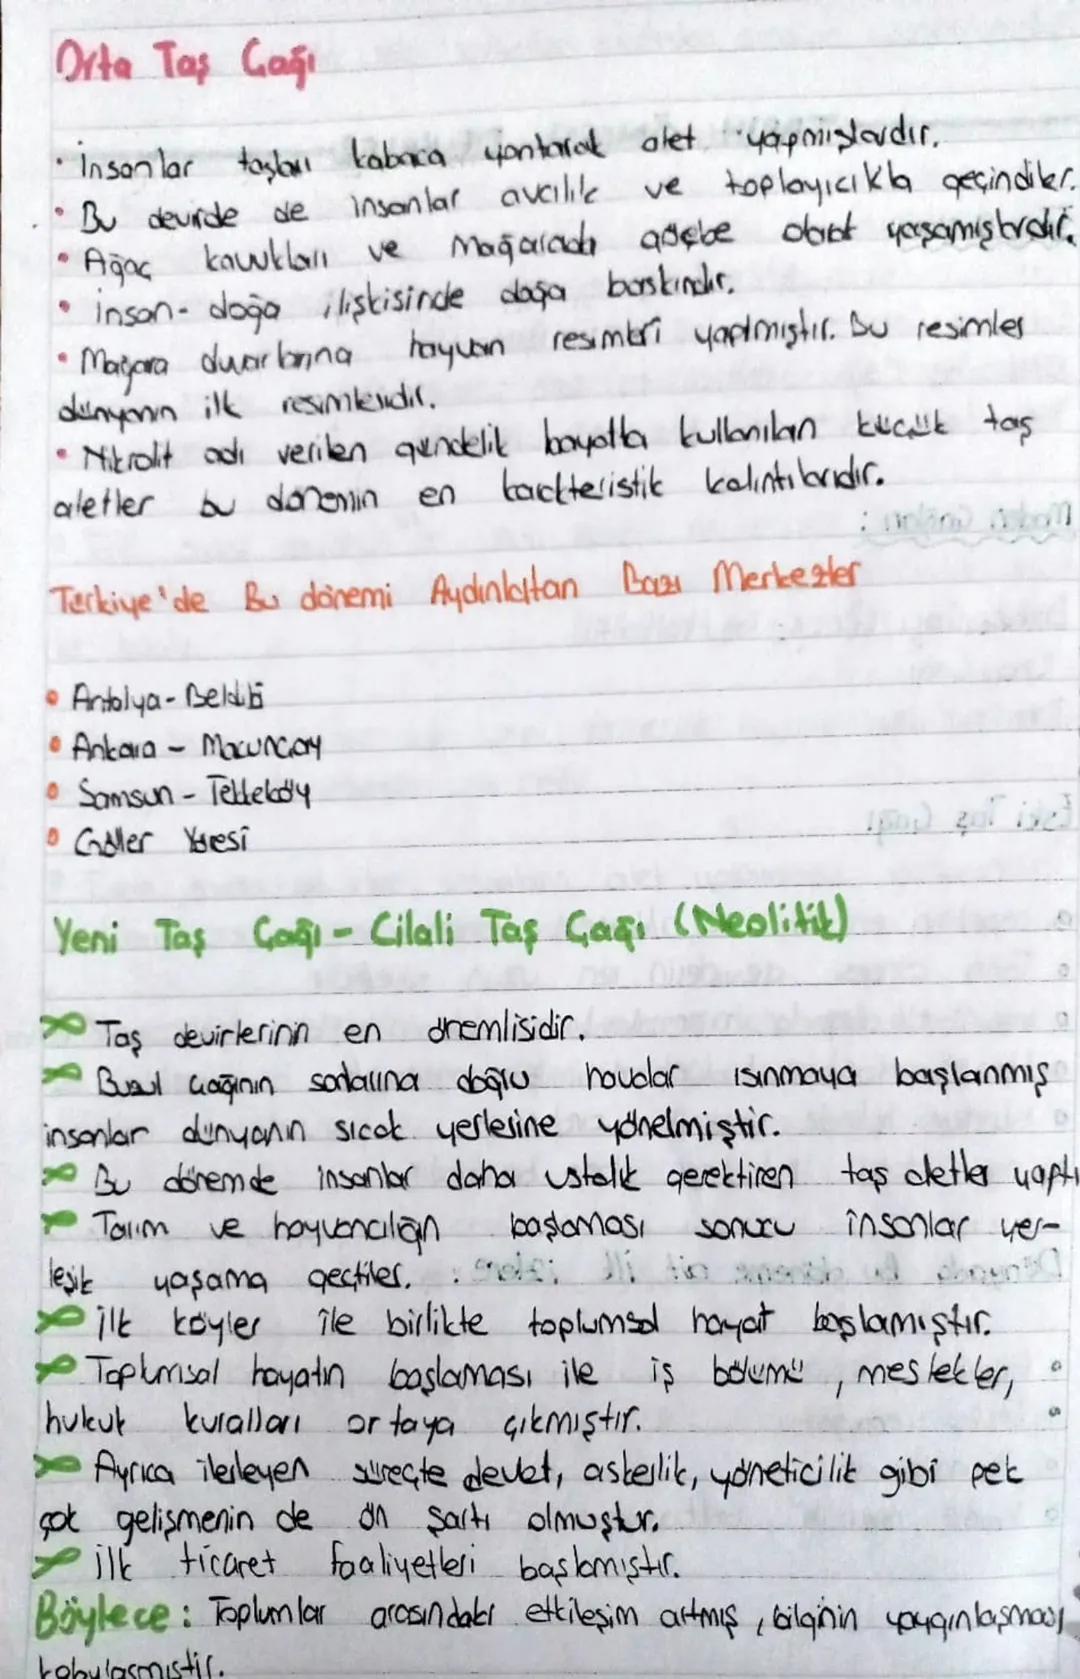 Orta Taş Çağı
• İnsanlar taşları kabaca yontarak alet yapmışlardır.
• Bu devirde de insanlar avcılık ve toplayıcıkla geçindiler.
• Ağaç kavukları ve Mağarada göçebe olarak yaşamışlardır.
• insan- doğa ilişkisinde doğa baskındır.
• Mağara duvarlarına hayvan resimleri yapılmıştır. Bu resimler
dünyanın ilk resimleridir.
• Mikrolit adı verilen gündelik hayatta kullanılan küçük taş
aletler bu dönemin en karakteristik kalıntılarıdır.
Türkiye'de Bu dönemi Aydınlatan Bazı Merkezler
• Antalya - Beldibi
• Ankara - Macunçay
• Samsun - Tekkeköy
• Göller Yöresi
Yeni Taş Çağı - Cilali Taş Çağı (Neolitik)
Taş devirlerinin en önemlisidir.
Buzul çağının sonlarına doğru havalar ısınmaya başlanmış
insanlar dünyanın sıcak yerlerine yönelmiştir.
Bu dönemde insanlar daha ustalık gerektiren taş aletler yaptı
Tarım ve hayvancılığın başlaması sonucu insanlar yer-
leşik yaşama geçtiler.
ilk köyler ile birlikte toplumsal hayat başlamıştır.
Toplumsal hayatın başlaması ile iş bölümü, meslekler,
hukuk kuralları ortaya çıkmıştır.
Ayrıca ilerleyen süreçte devlet, askerlik, yöneticilik gibi pek
çok gelişmenin de ön şartı olmuştur.
ilk ticaret faaliyetleri başlamıştır.
Böylece: Toplumlar arasındaki etkileşim artmış, bilginin yaygınlaşması
kolaylaşmıştır.